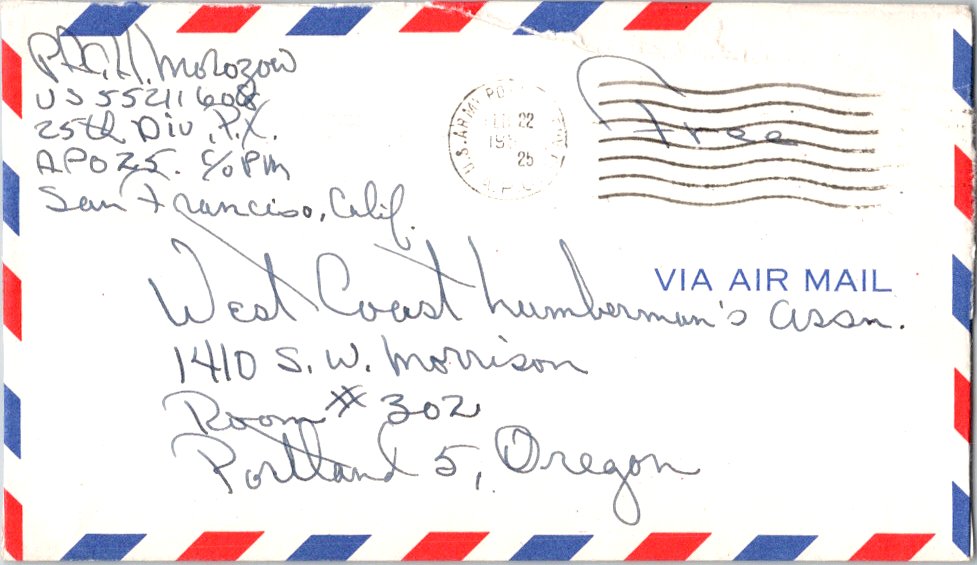 Pfc. H. Morozow
US 55211608
25th Div. P.X.
APO 25. c/o PM
San Franciso, Calif.
U.S. ARMY
22
25
Free
VIA AIR MAIL
West Coast Lumberman's Assn.
1410 S. W. Morrison
Room # 302
Portland 5, Oregon